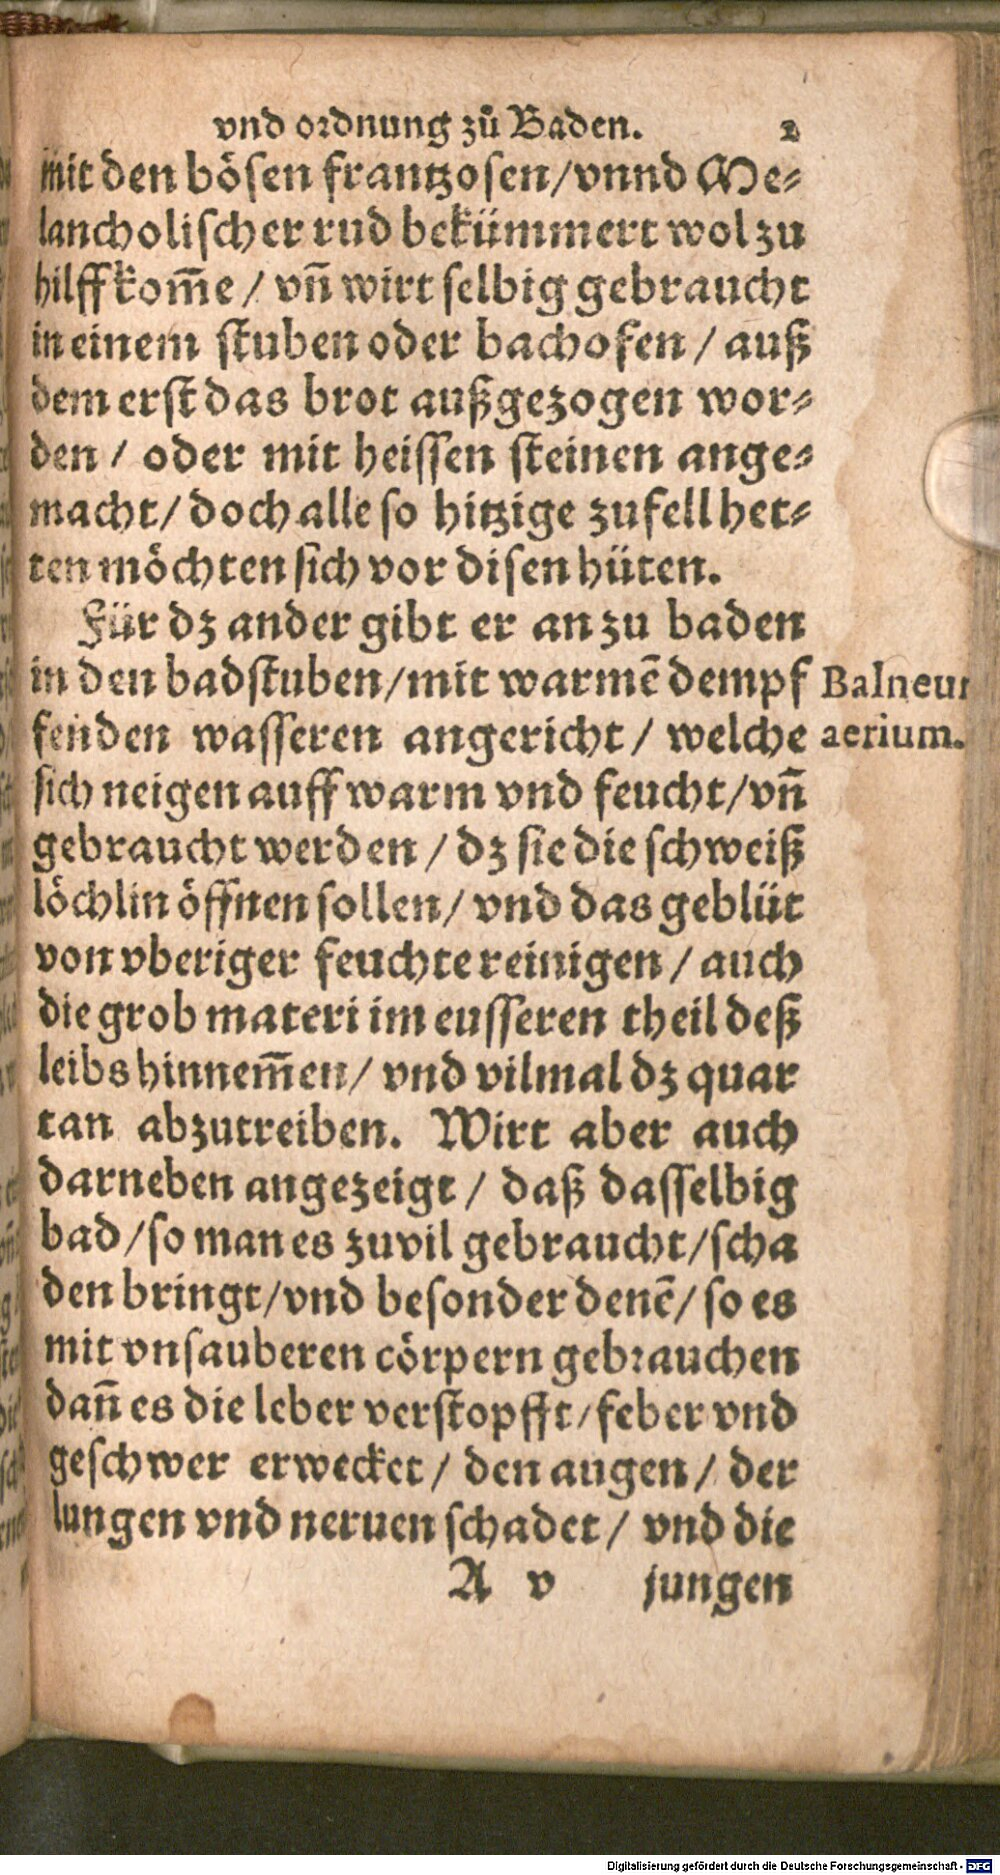 vnd ordnung zů Baden. 2
mit den bösen frantzosen/vnnd Me⸗
lancholischer rud bekümmert wol zu
hilff kom̄e / vn̄ wirt selbig gebraucht
in einem stuben oder bachofen / auß
dem erst das brot außgezogen wor⸗
den / oder mit heissen steinen ange⸗
macht/ doch alle so hitzige zufell het⸗
ten möchten sich vor disen hüten.
Für dz ander gibt er an zu baden
in den badstuben/mit warmē dempf Balneum
fenden wasseren angericht / welche aerium.
sich neigen auff warm vnd feucht/vn̄
gebraucht werden / dz sie die schweiß
löchlin öffnen sollen/ vnd das geblüt
von vberiger feuchte reinigen / auch
die grob materi im eusseren theil deß
leibs hinnem̄en/ vnd vilmal dz quar
tan abzutreiben. Wirt aber auch
darneben angezeigt / daß dasselbig
bad/so man es zuvil gebraucht/scha
den bringt/vnd besonder denē/ so es
mit vnsauberen cörpern gebrauchen
dan̄ es die leber verstopfft/feber vnd
geschwer erwecket / den augen / der
lungen vnd neruen schadet / vnd die
A v jungen
Digitalisierung gefördert durch die Deutsche Forschungsgemeinschaft - DFG